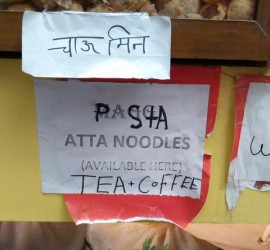 चाऊ मिन
PASTA
ATTA NOODLES
(AVAILABLE HERE)
TEA+COFFEE